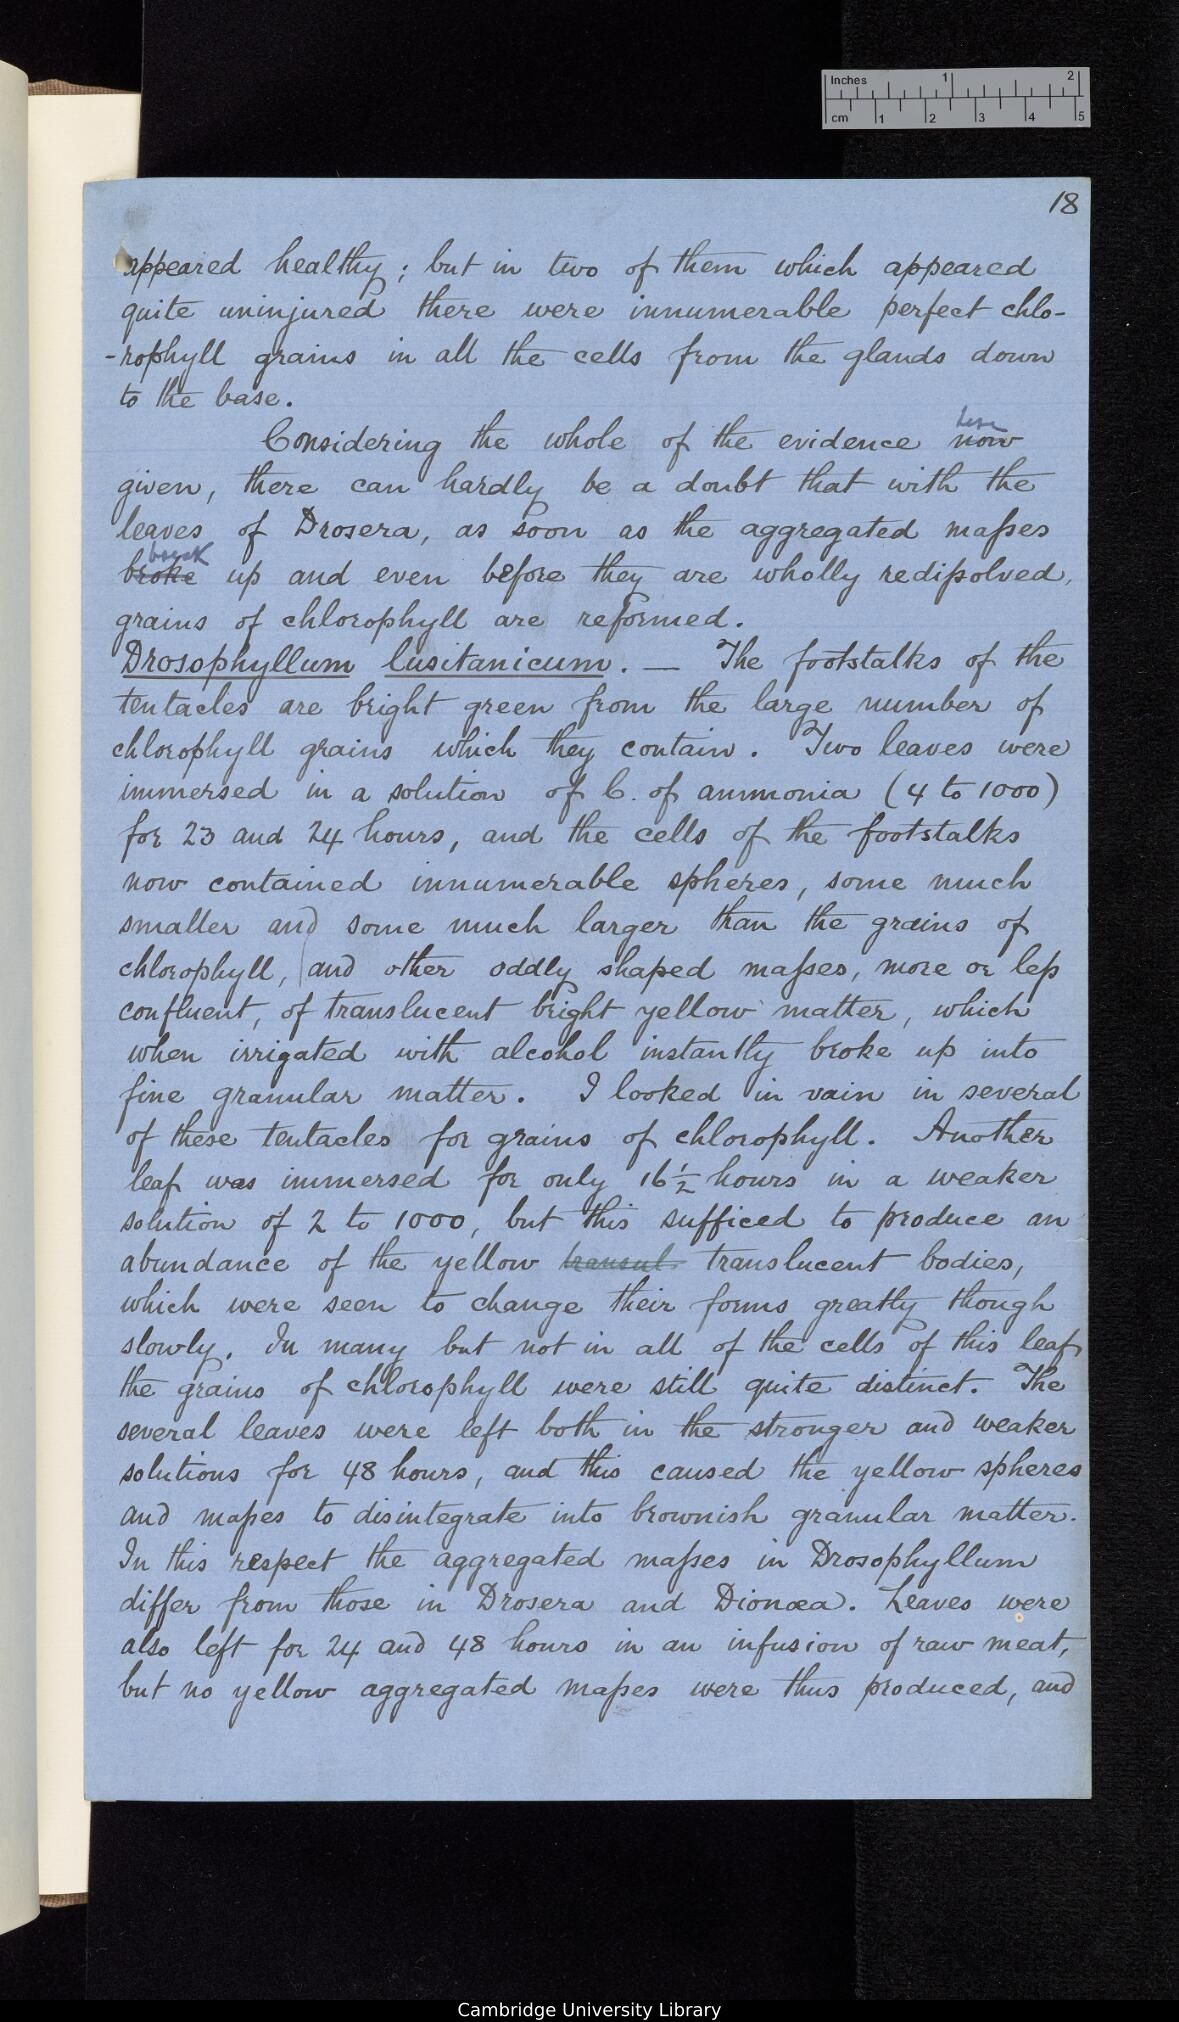 Inches 1 2
cm 1 2 3 4 5
18
appeared healthy; but in two of them which appeared
quite uninjured there were innumerable perfect chlo-
-rophyll grains in all the cells from the glands down
to the base.
here
Considering the whole of the evidence now
given, there can hardly be a doubt that with the
leaves of Drosera, as soon as the aggregated masses
break
broke up and even before they are wholly redissolved,
grains of chlorophyll are reformed.
Drosophyllum lusitanicum. — The footstalks of the
tentacles are bright green from the large number of
chlorophyll grains which they contain. Two leaves were
immersed in a solution of C. of ammonia (4 to 1000)
for 23 and 24 hours, and the cells of the footstalks
now contained innumerable spheres, some much
smaller and some much larger than the grains of
chlorophyll, and other oddly shaped masses, more or less
confluent, of translucent bright yellow matter, which
when irrigated with alcohol instantly broke up into
fine granular matter. I looked in vain in several
of these tentacles for grains of chlorophyll. Another
leaf was immersed for only 16½ hours in a weaker
solution of 2 to 1000, but this sufficed to produce an
abundance of the yellow transul. translucent bodies,
which were seen to change their forms greatly though
slowly. In many but not in all of the cells of this leaf
the grains of chlorophyll were still quite distinct. The
several leaves were left both in the stronger and weaker
solutions for 48 hours, and this caused the yellow spheres
and masses to disintegrate into brownish granular matter.
In this respect the aggregated masses in Drosophyllum
differ from those in Drosera and Dionæa. Leaves were
also left for 24 and 48 hours in an infusion of raw meat,
but no yellow aggregated masses were thus produced, and
Cambridge University Library